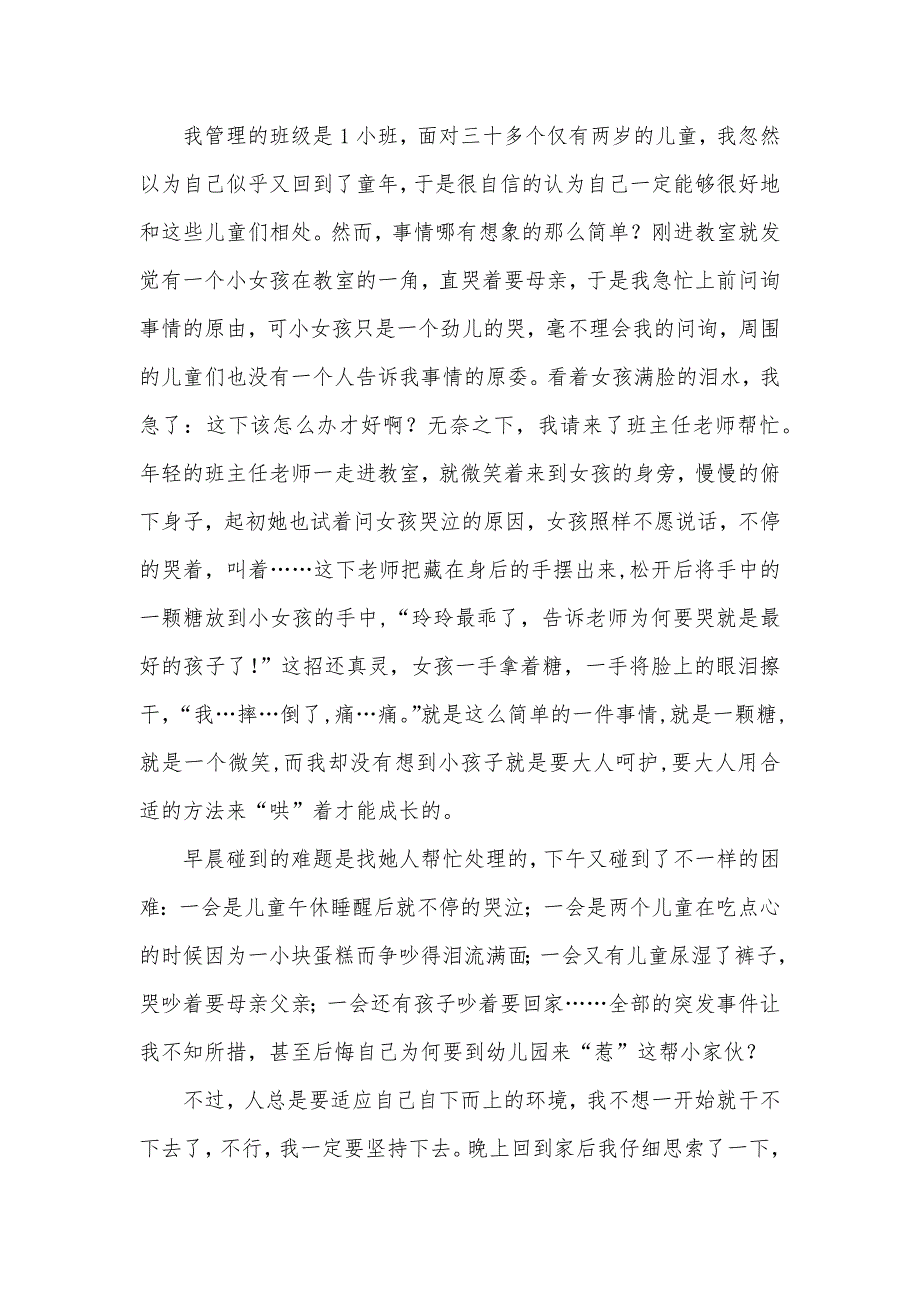 我管理的班级是1小班，面对三十多个仅有两岁的儿童，我忽然
以为自己似乎又回到了童年，于是很自信的认为自己一定能够很好地
和这些儿童们相处。然而，事情哪有想象的那么简单？刚进教室就发
觉有一个小女孩在教室的一角，直哭着要母亲，于是我急忙上前问询
事情的原由，可小女孩只是一个劲儿的哭，毫不理会我的问询，周围
的儿童们也没有一个人告诉我事情的原委。看着女孩满脸的泪水，我
急了：这下该怎么办才好啊？无奈之下，我请来了班主任老师帮忙。
年轻的班主任老师一走进教室，就微笑着来到女孩的身旁，慢慢的俯
下身子，起初她也试着问女孩哭泣的原因，女孩照样不愿说话，不停
的哭着，叫着……这下老师把藏在身后的手摆出来,松开后将手中的
一颗糖放到小女孩的手中,“玲玲最乖了，告诉老师为何要哭就是最
好的孩子了!”这招还真灵，女孩一手拿着糖，一手将脸上的眼泪擦
干，“我…摔…倒了,痛…痛。”就是这么简单的一件事情,就是一颗糖,
就是一个微笑,而我却没有想到小孩子就是要大人呵护,要大人用合
适的方法来“哄”着才能成长的。
早晨碰到的难题是找她人帮忙处理的,下午又碰到了不一样的困
难：一会是儿童午休睡醒后就不停的哭泣；一会是两个儿童在吃点心
的时候因为一小块蛋糕而争吵得泪流满面；一会又有儿童尿湿了裤子,
哭吵着要母亲父亲；一会还有孩子吵着要回家……全部的突发事件让
我不知所措，甚至后悔自己为何要到幼儿园来“惹”这帮小家伙？
不过，人总是要适应自己自下而上的环境，我不想一开始就干不
下去了，不行，我一定要坚持下去。晚上回到家后我仔细思索了一下，